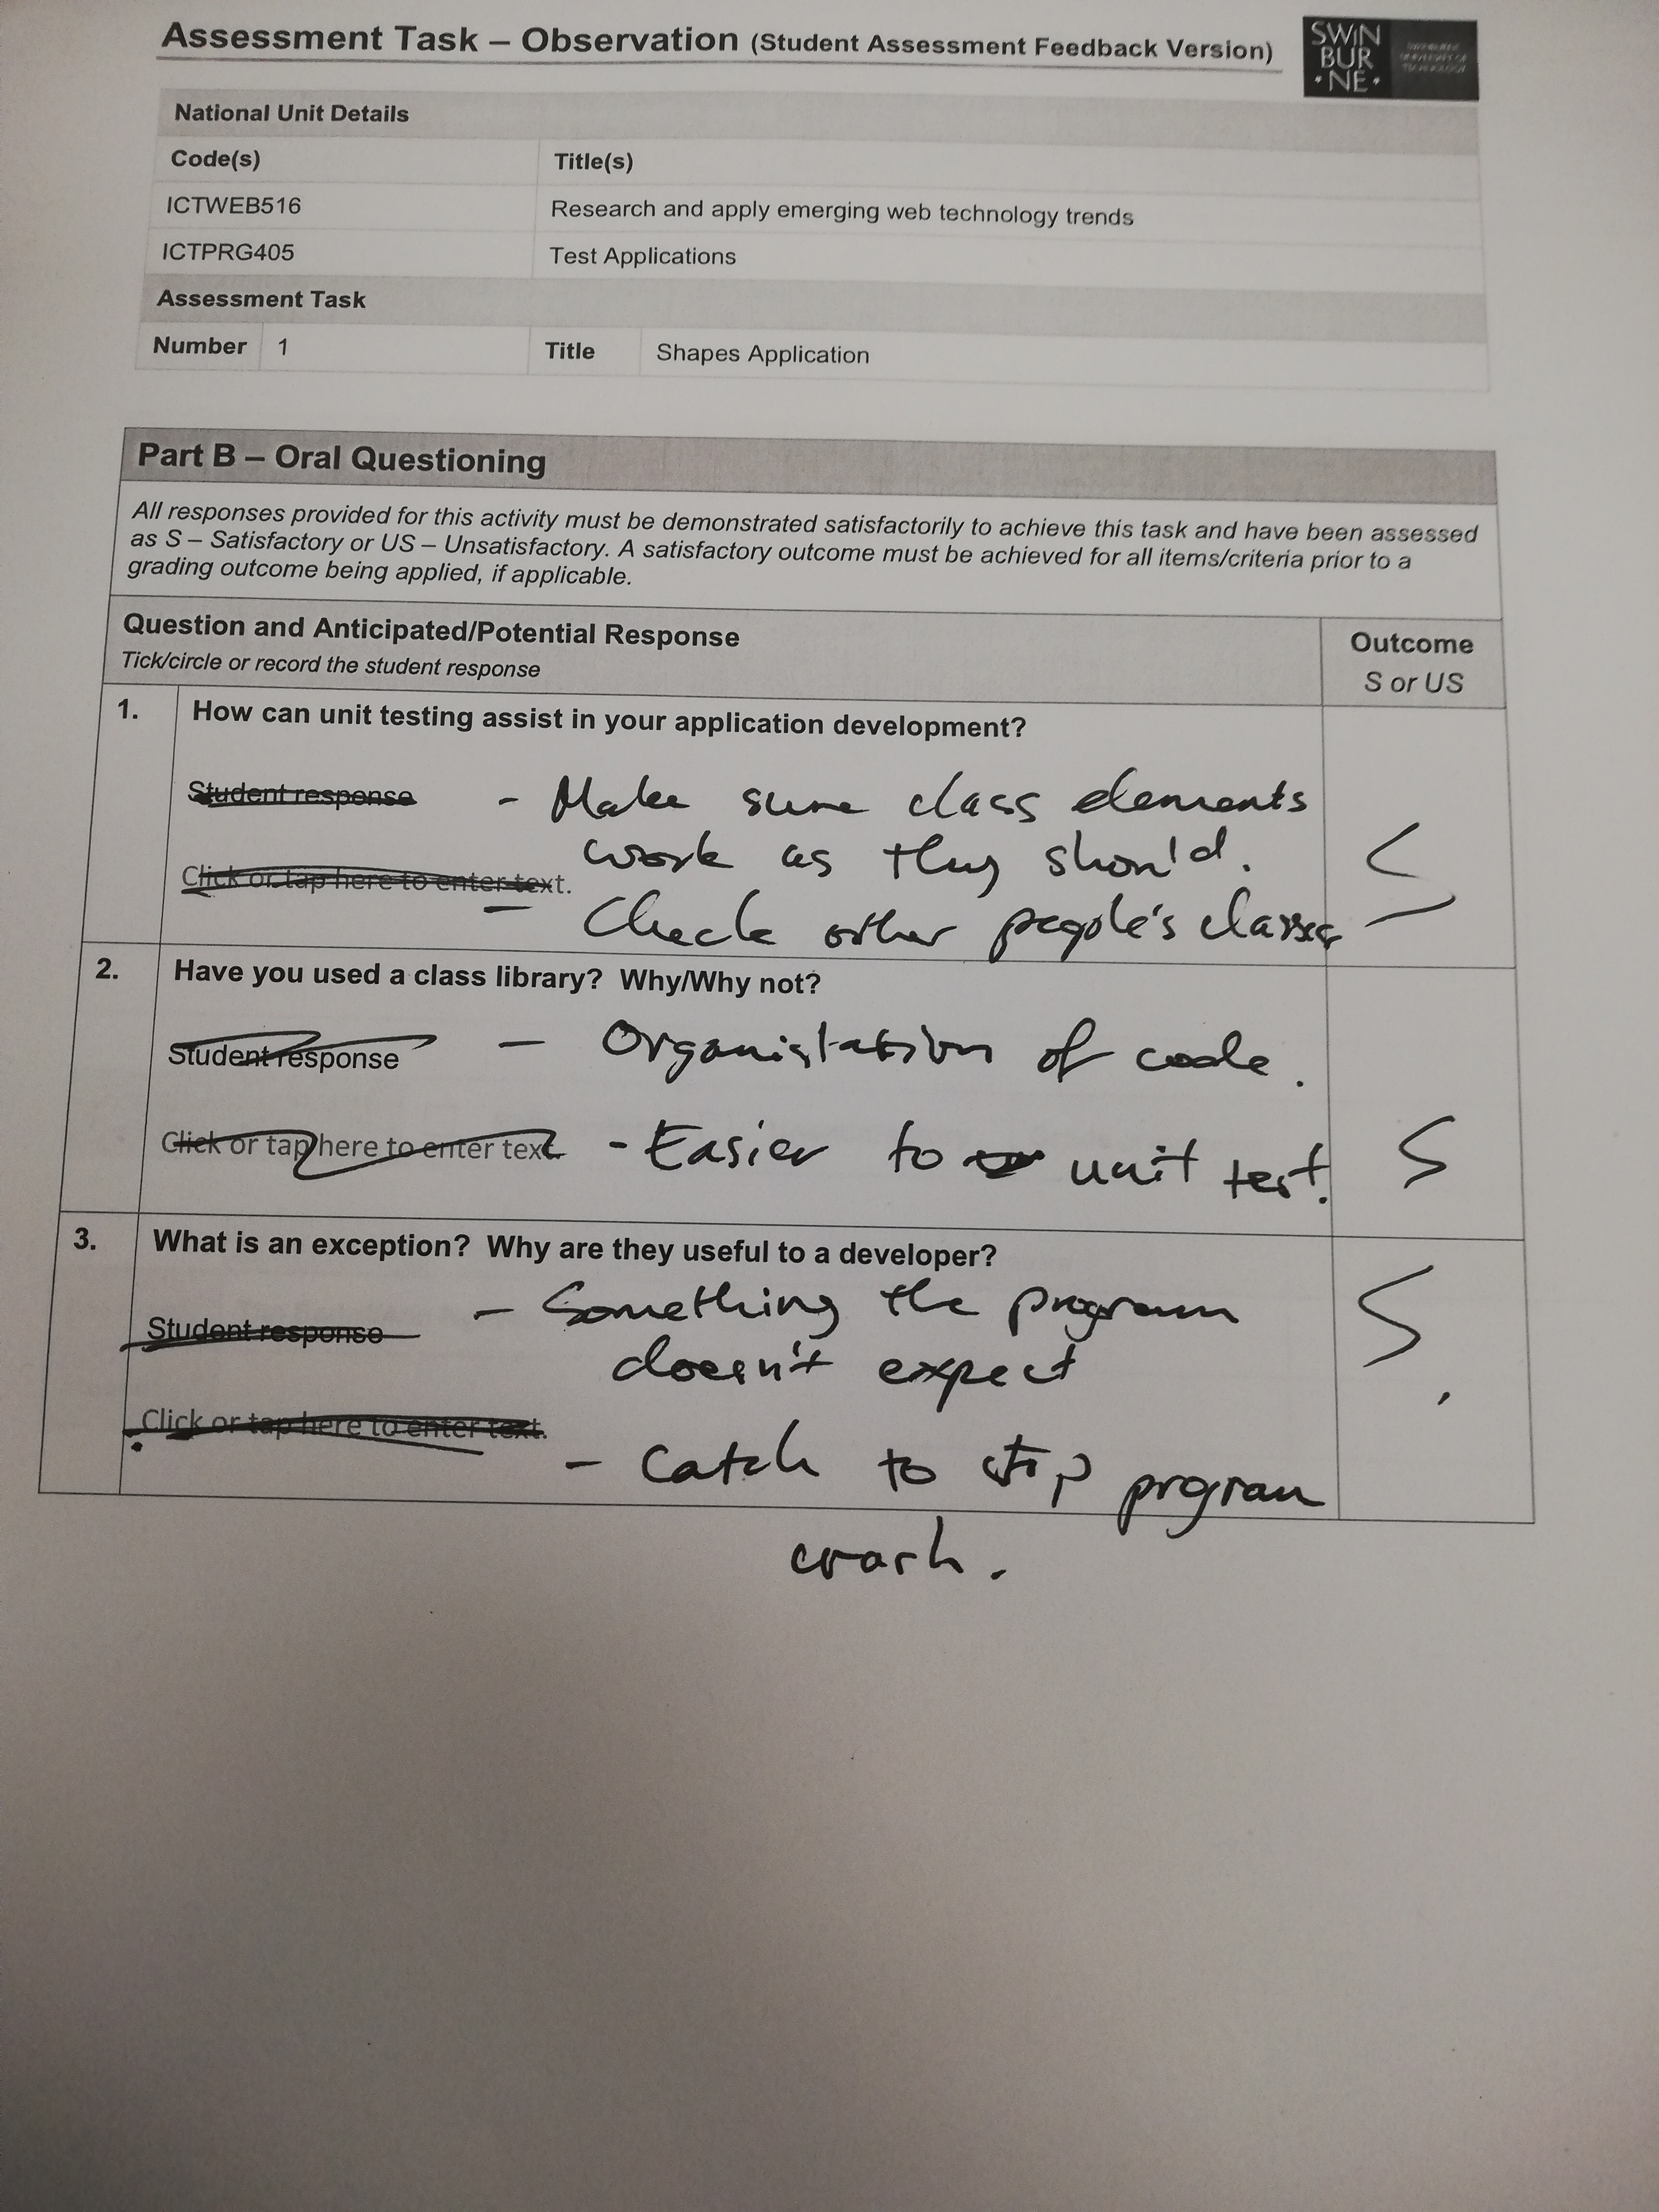 Assessment Task – Observation (Student Assessment Feedback Version)
SWIN
BUR
•NE•
SWINBURNE
UNIVERSITY OF
TECHNOLOGY
National Unit Details
Code(s) Title(s)
ICTWEB516 Research and apply emerging web technology trends
ICTPRG405 Test Applications
Assessment Task
Number 1 Title Shapes Application
Part B – Oral Questioning
All responses provided for this activity must be demonstrated satisfactorily to achieve this task and have been assessed
as S – Satisfactory or US – Unsatisfactory. A satisfactory outcome must be achieved for all items/criteria prior to a
grading outcome being applied, if applicable.
Question and Anticipated/Potential Response
Tick/circle or record the student response
Outcome
S or US
1. How can unit testing assist in your application development?
Student response - Make sure class elements
work as they should.
Click or tap here to enter text.
- Check other people's classes
S
2. Have you used a class library? Why/Why not?
Student response - Organistation of code.
Click or tap here to enter text. - Easier to unit test.
S
3. What is an exception? Why are they useful to a developer?
- Something the program
Student response
doesn't expect
S
Click or tap here to enter text.
- Catch to stop program
crash.